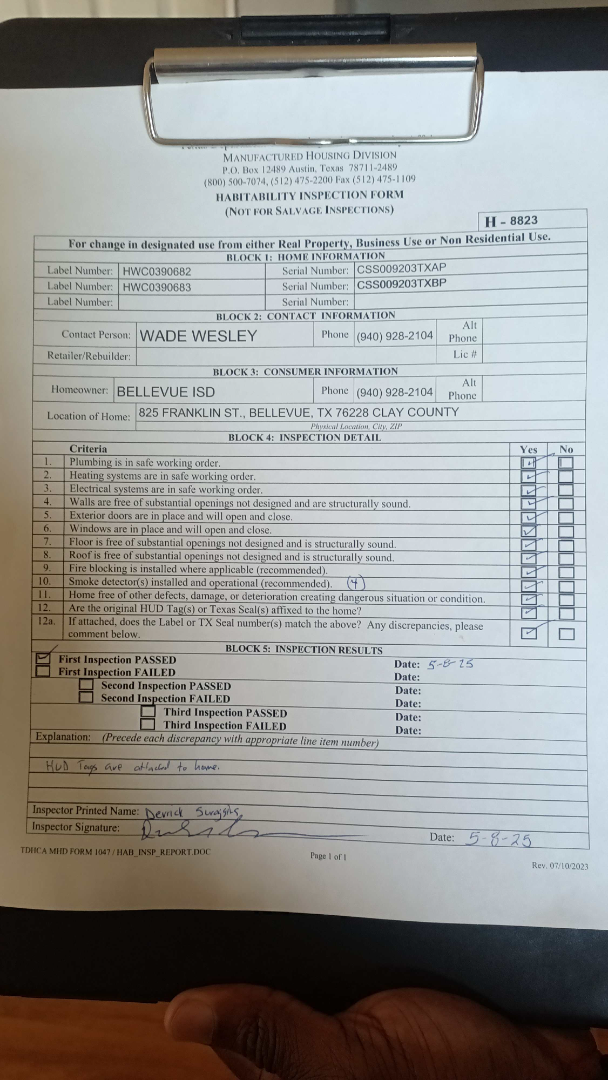 MANUFACTURED HOUSING DIVISION
P.O. Box 12489 Austin, Texas 78711-2489
(800) 500-7074, (512) 475-2200 Fax (512) 475-1109
HABITABILITY INSPECTION FORM
(NOT FOR SALVAGE INSPECTIONS)
H - 8823
For change in designated use from either Real Property, Business Use or Non Residential Use.
BLOCK 1: HOME INFORMATION
Label Number: HWC0390682 Serial Number: CSS009203TXAP
Label Number: HWC0390683 Serial Number: CSS009203TXBP
Label Number: Serial Number:
BLOCK 2: CONTACT INFORMATION
Contact Person: WADE WESLEY Phone (940) 928-2104 Alt Phone
Retailer/Rebuilder: Lic #
BLOCK 3: CONSUMER INFORMATION
Homeowner: BELLEVUE ISD Phone (940) 928-2104 Alt Phone
Location of Home: 825 FRANKLIN ST., BELLEVUE, TX 76228 CLAY COUNTY
Physical Location, City, ZIP
BLOCK 4: INSPECTION DETAIL
Criteria Yes No
1. Plumbing is in safe working order.
2. Heating systems are in safe working order.
3. Electrical systems are in safe working order.
4. Walls are free of substantial openings not designed and are structurally sound.
5. Exterior doors are in place and will open and close.
6. Windows are in place and will open and close.
7. Floor is free of substantial openings not designed and is structurally sound.
8. Roof is free of substantial openings not designed and is structurally sound.
9. Fire blocking is installed where applicable (recommended).
10. Smoke detector(s) installed and operational (recommended). (4)
11. Home free of other defects, damage, or deterioration creating dangerous situation or condition.
12. Are the original HUD Tag(s) or Texas Seal(s) affixed to the home?
12a. If attached, does the Label or TX Seal number(s) match the above? Any discrepancies, please
comment below.
BLOCK 5: INSPECTION RESULTS
First Inspection PASSED Date: 5-8-25
First Inspection FAILED Date:
Second Inspection PASSED Date:
Second Inspection FAILED Date:
Third Inspection PASSED Date:
Third Inspection FAILED Date:
Explanation: (Precede each discrepancy with appropriate line item number)
HUD Tags are attached to home.
Inspector Printed Name: Derrick
Inspector Signature:
Date: 5-8-25
TDHCA MHD FORM 1047 / HAB_INSP_REPORT.DOC Page 1 of 1 Rev. 07/10/2023